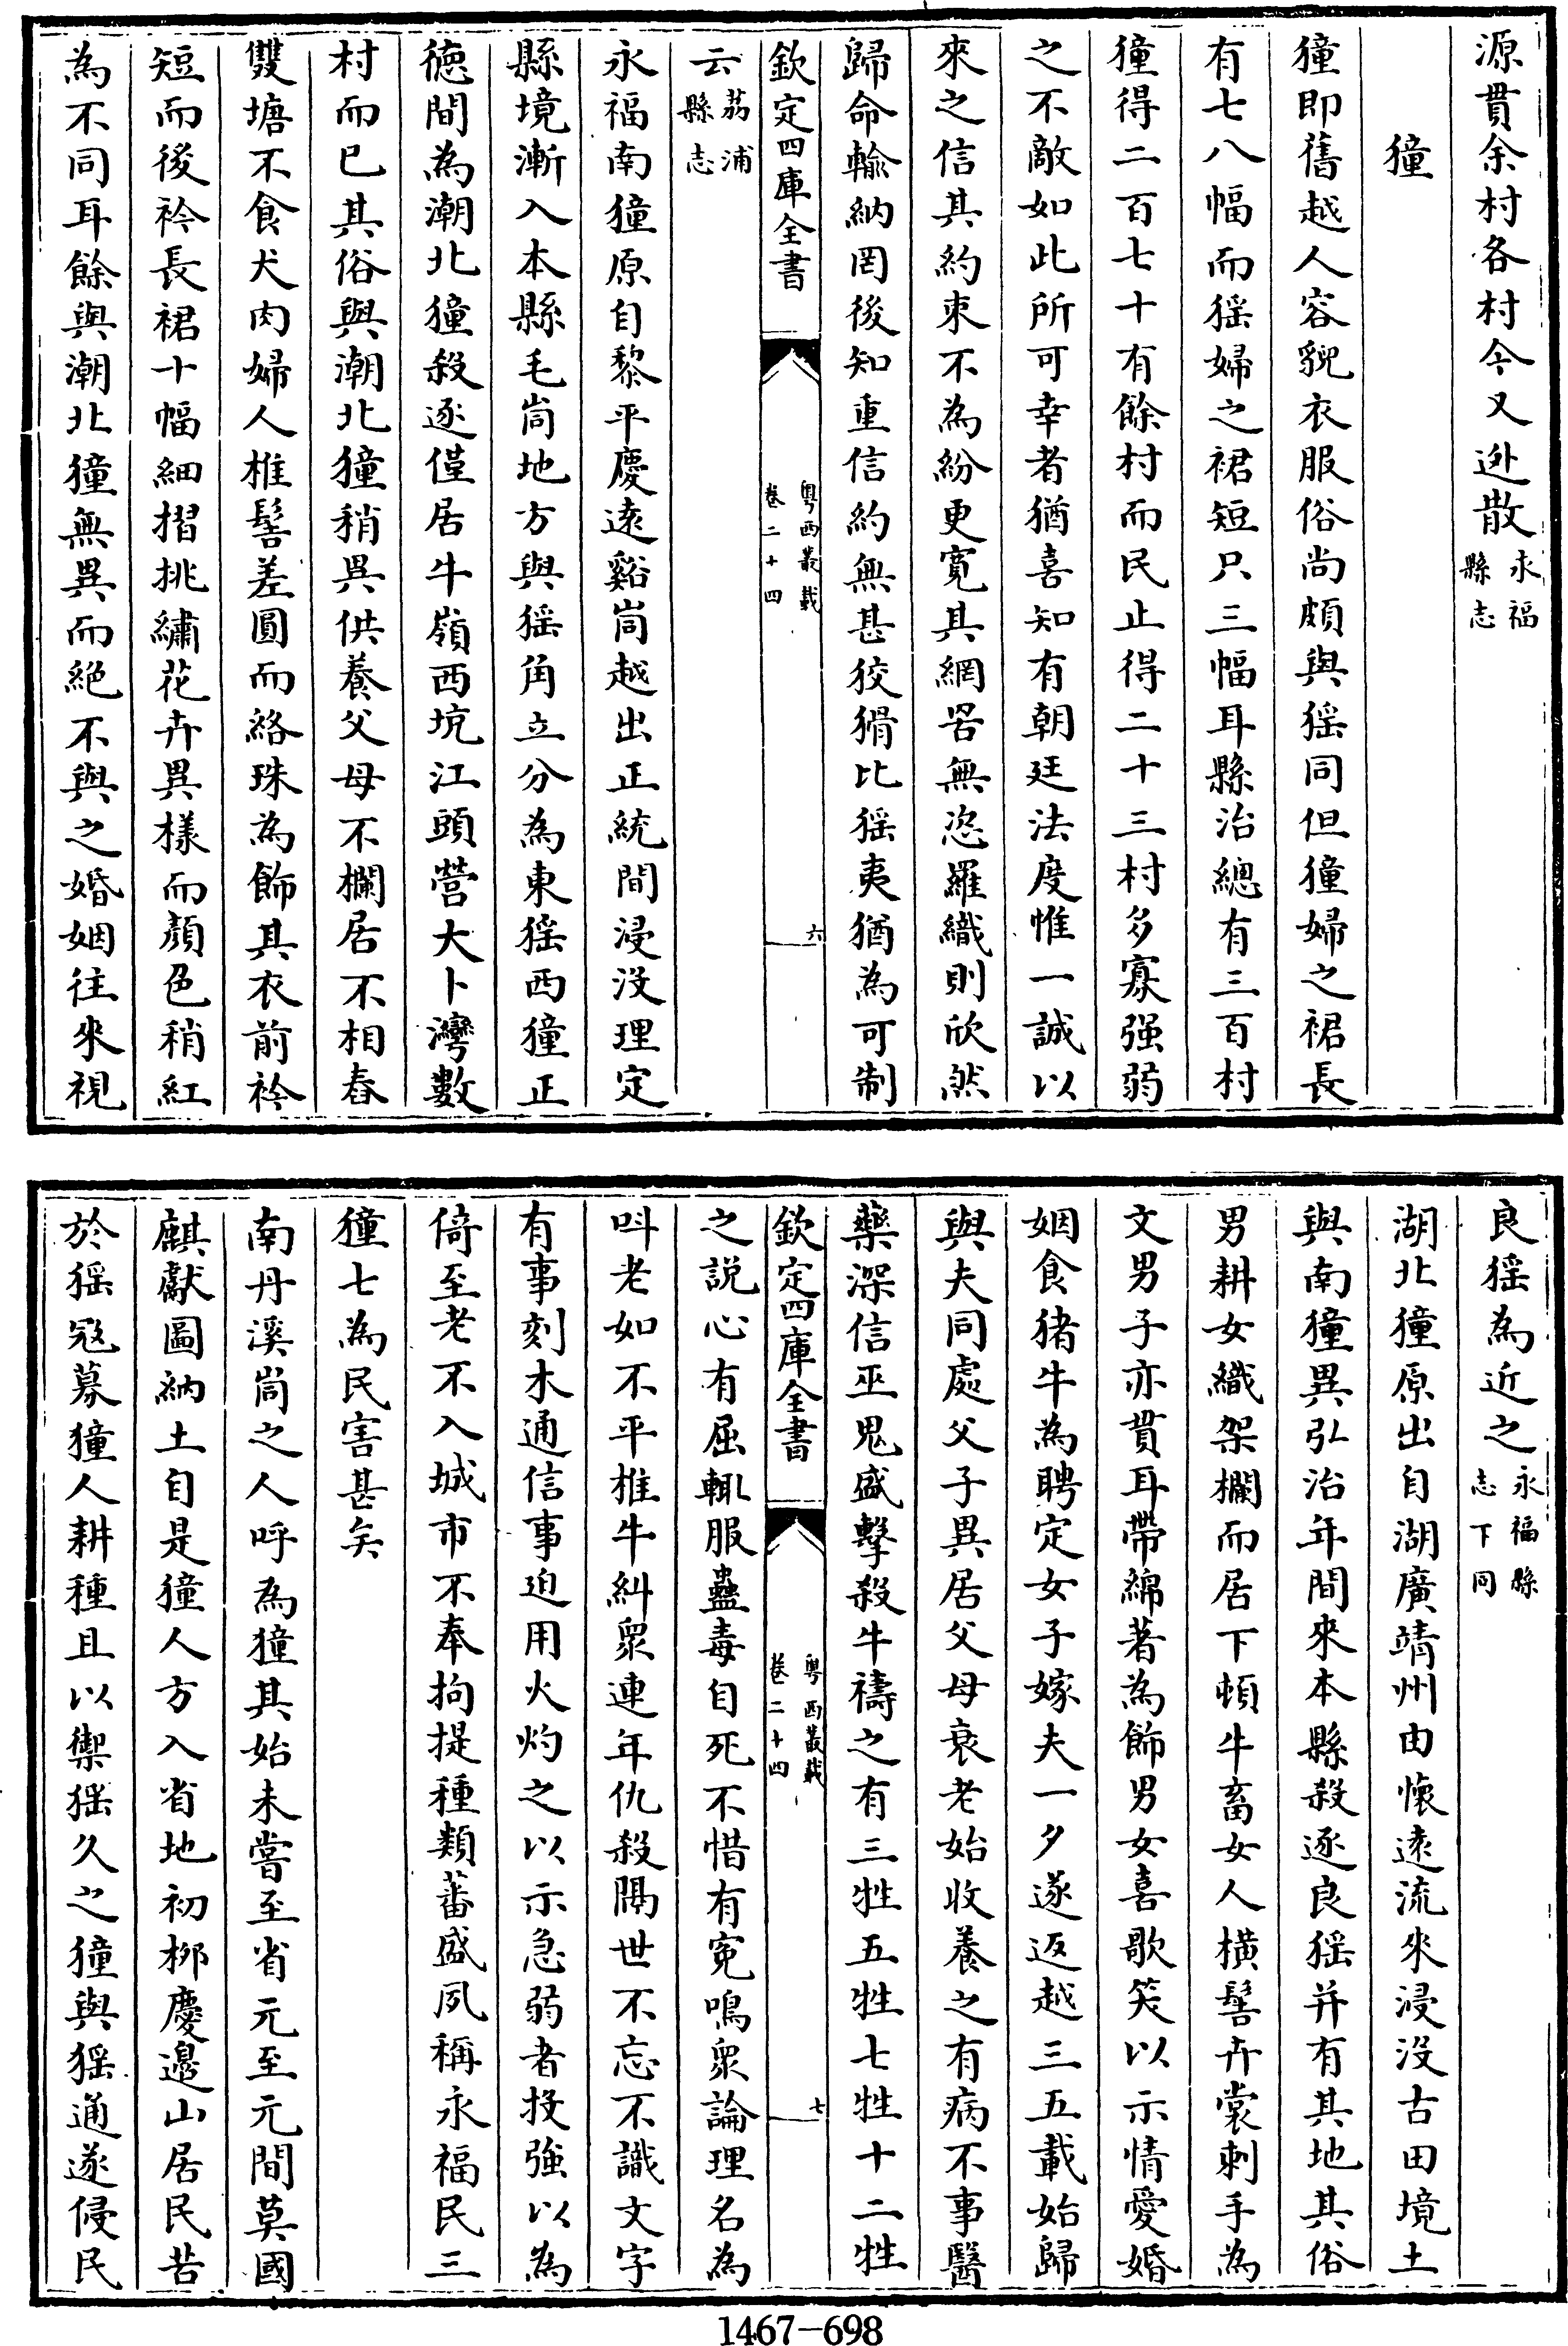 源貫余村各村今又逃散永福縣志
獞
獞即舊越人容貌衣服俗尚頗與猺同但獞婦之裙長
有七八幅而猺婦之裙短只三幅耳縣治總有三百村
獞得二百七十有餘村而民止得二十三村多寡强弱
之不敵如此所可幸者猶喜知有朝廷法度惟一誠以
來之信其約束不為紛更寛其網罟無恣羅織則欣然
歸命輸納罔後知重信約無甚狡猾比猺夷猶為可制
欽定四庫全書
粤西叢載
卷二十四
六
云荔浦縣志
永福南獞原自黎平慶遠谿峝越出正統間浸沒理定
縣境漸入本縣毛峝地方與猺角立分為東猺西獞正
德間為潮北獞殺逐僅居牛嶺西坑江頭營大卜灣數
村而已其俗與潮北獞稍異供養父母不欄居不相舂
雙塘不食犬肉婦人椎髻差圓而絡珠為飾其衣前衿
短而後衿長裙十幅細摺挑繡花卉異樣而顏色稍紅
為不同耳餘與潮北獞無異而絕不與之婚姻往來視
良猺為近之永福縣志下同
湖北獞原出自湖廣靖州由懷遠流來浸沒古田境土
與南獞異弘治年間來本縣殺逐良猺并有其地其俗
男耕女織架欄而居下頓牛畜女人橫髻卉裳刺手為
文男子亦貫耳帶綿著為飾男女喜歌笑以示情愛婚
姻食猪牛為聘定女子嫁夫一夕遂返越三五載始歸
與夫同處父子異居父母衰老始收養之有病不事醫
藥深信巫鬼盛擊殺牛禱之有三牲五牲七牲十二牲
欽定四庫全書
粤西叢載
卷二十四
七
之説心有屈輒服蠱毒自死不惜有寃鳴衆論理名為
呌老如不平椎牛糾衆連年仇殺隔世不忘不識文字
有事刻木通信事迫用火灼之以示急弱者投強以為
倚至老不入城市不奉拘提種類蕃盛夙稱永福民三
獞七為民害甚矣
南丹溪峝之人呼為獞其始未嘗至省元至元間莫國
麒獻圖納土自是獞人方入省地初栁慶邊山居民苦
於猺冦募獞人耕種且以禦猺久之獞與猺通遂侵民
1467-698